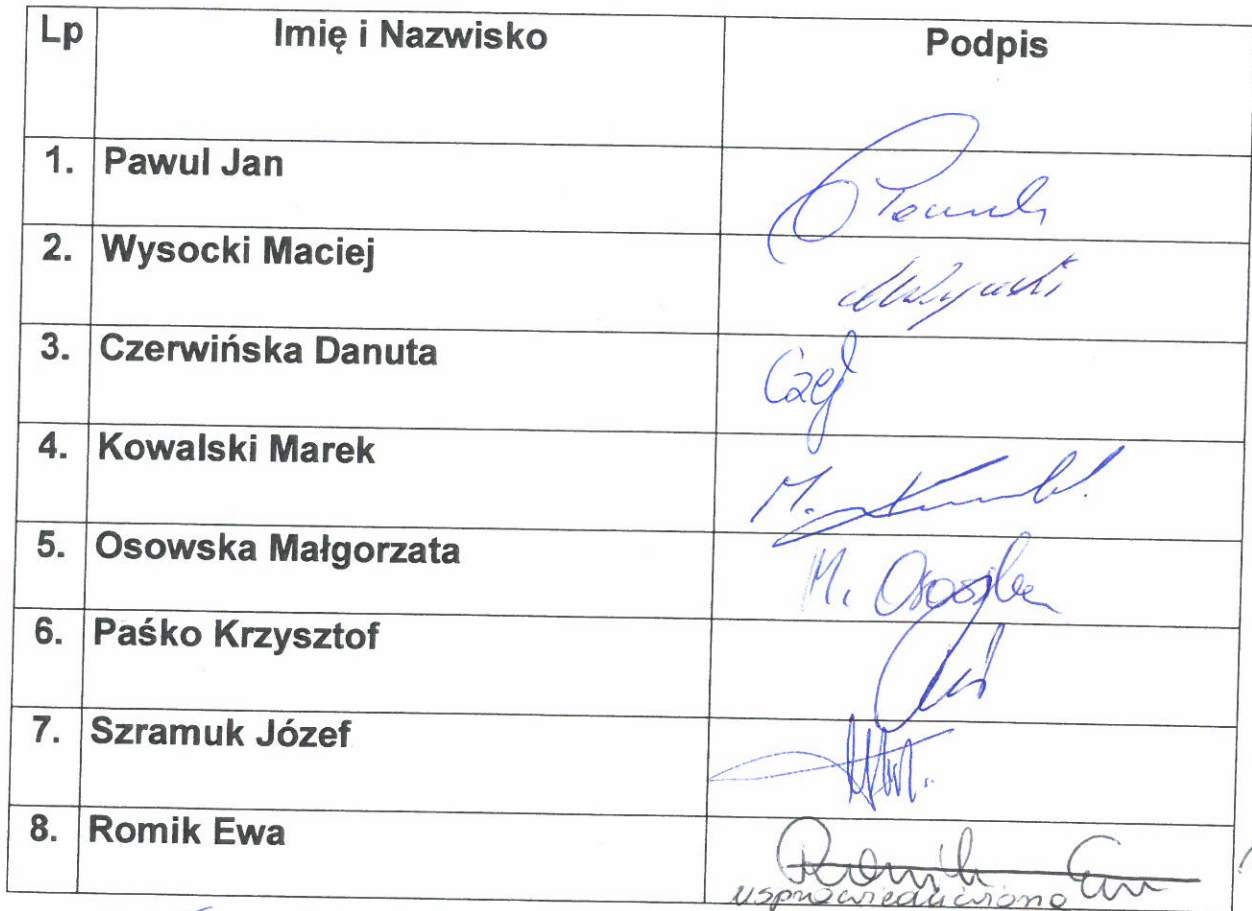 Lp Imię i Nazwisko Podpis
1. Pawul Jan
2. Wysocki Maciej
3. Czerwińska Danuta
4. Kowalski Marek M.
5. Osowska Małgorzata M.
6. Paśko Krzysztof
7. Szramuk Józef
8. Romik Ewa Romik Ewa
usprawiedliwiona